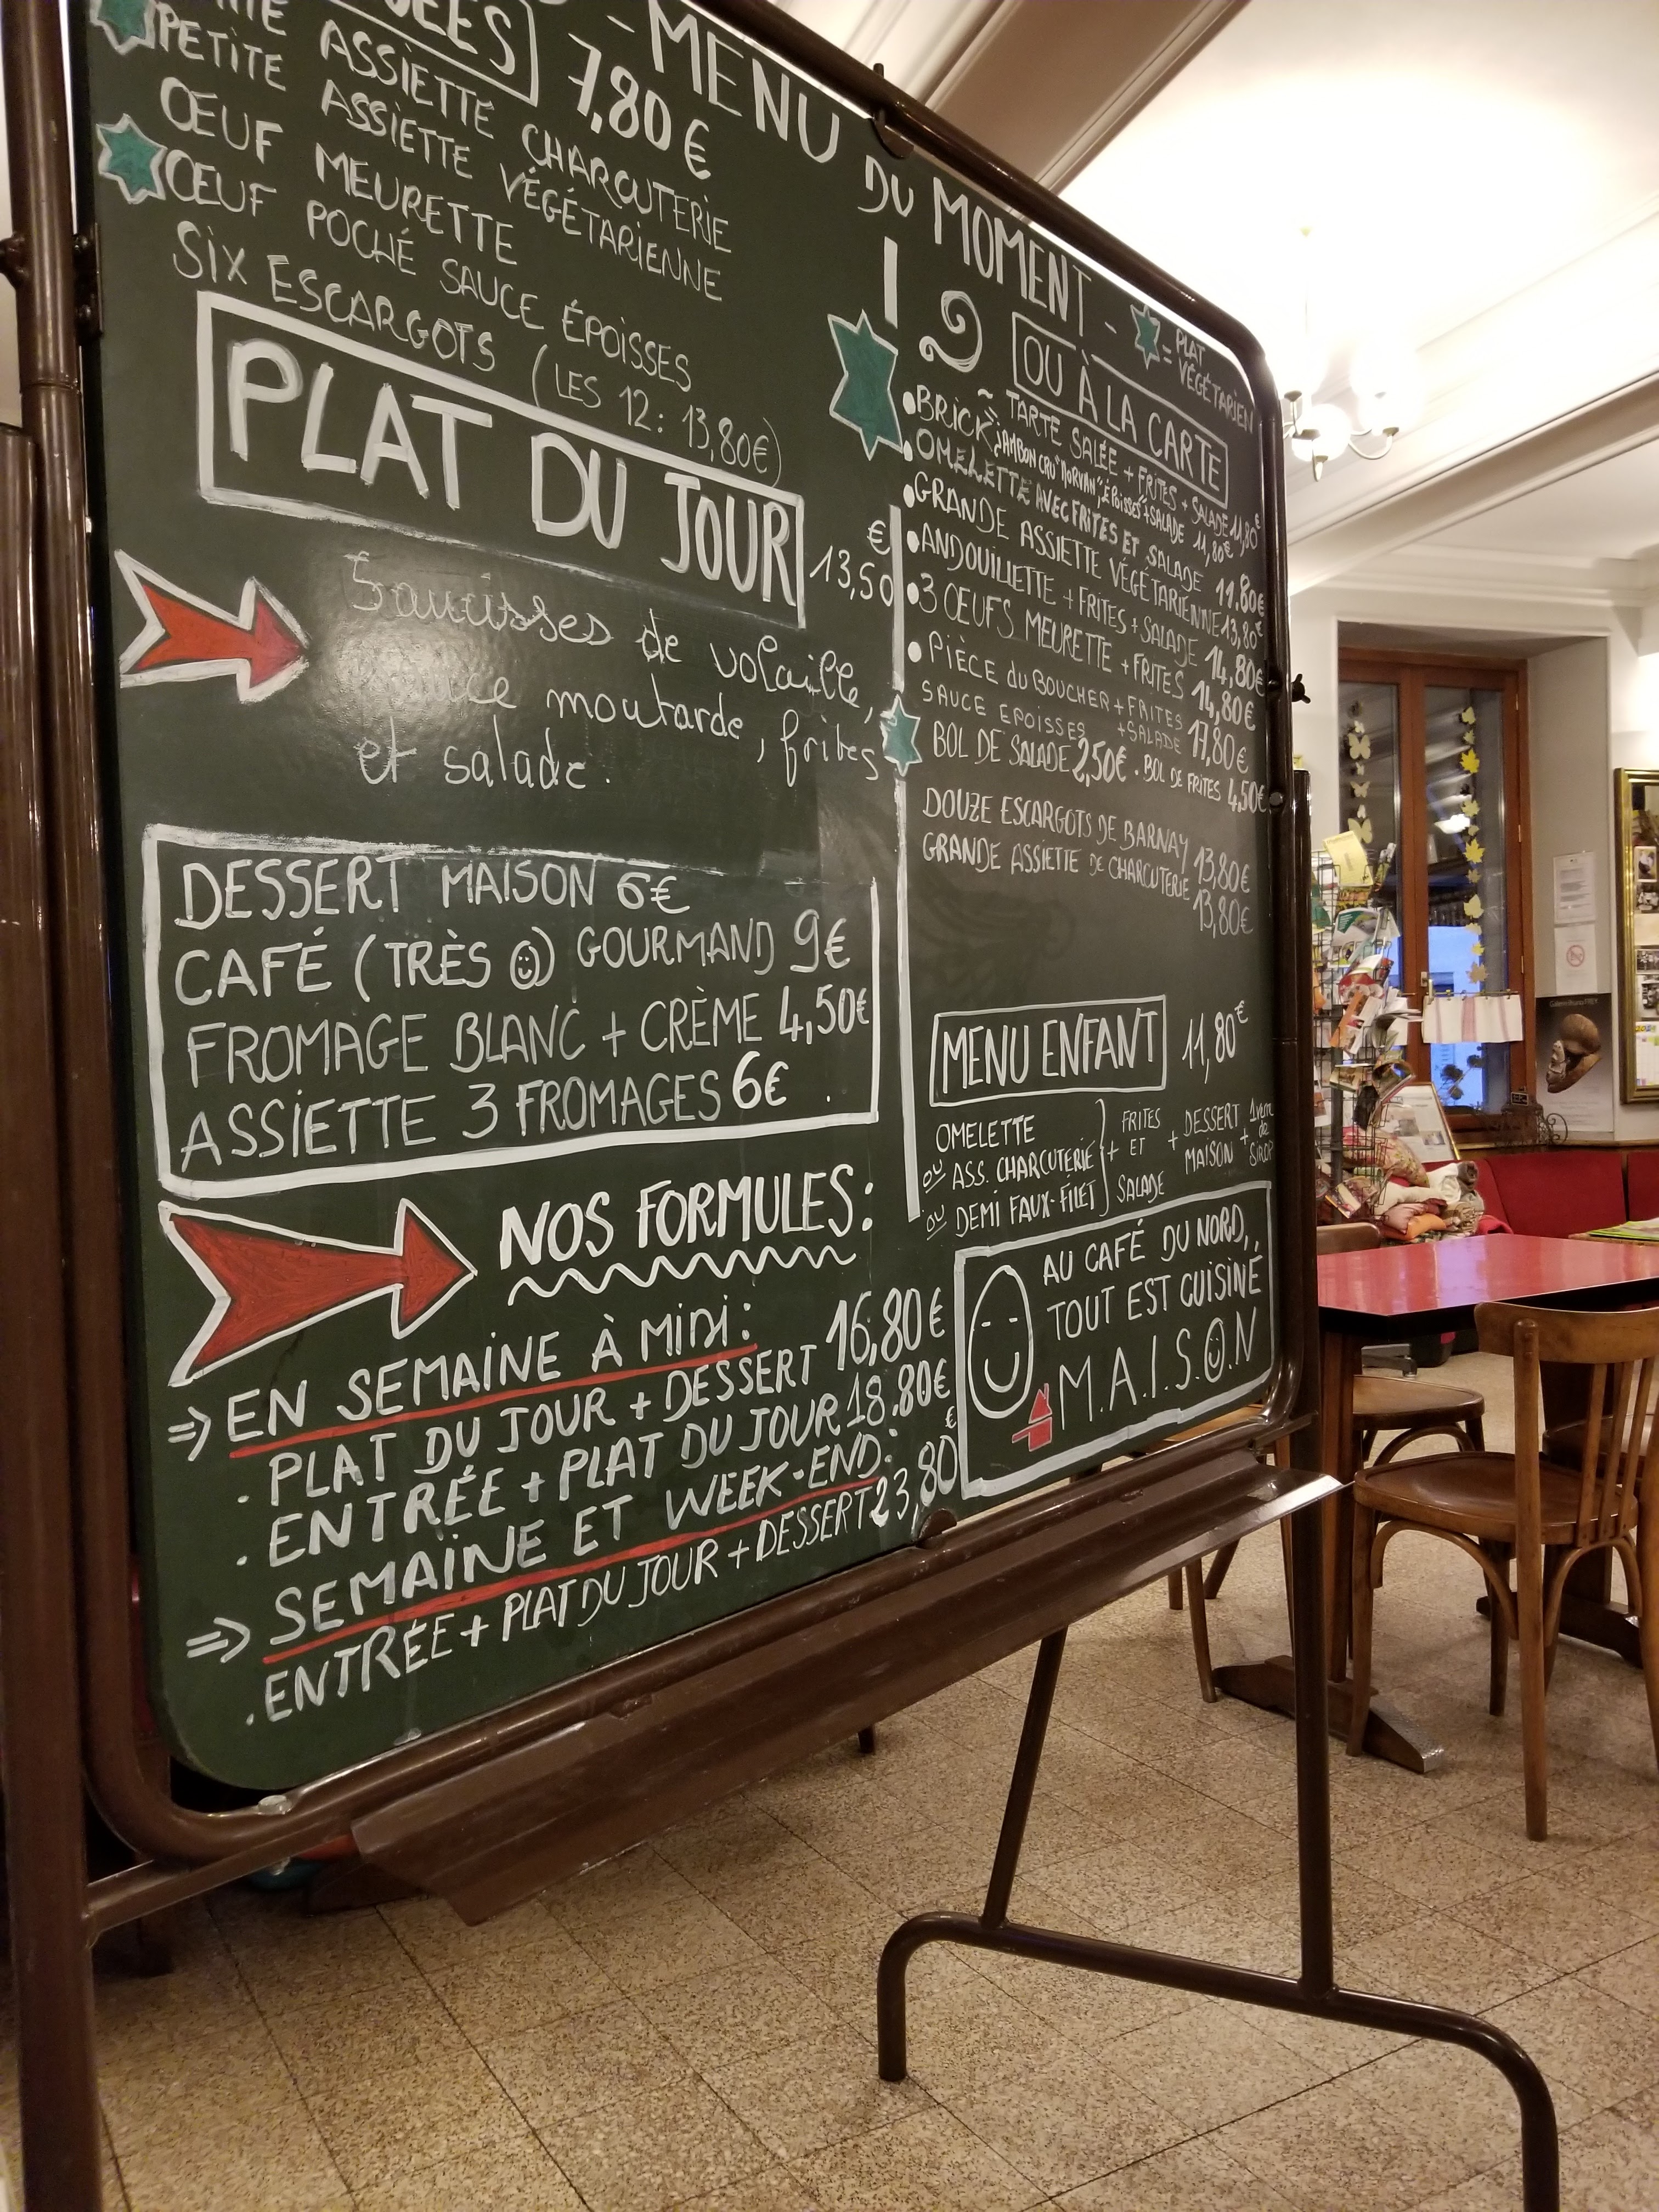 - MENU DU MOMENT -
= PLAT
VÉGÉTARIEN
7,80 €
ASSIETTE CHARCUTERIE
PETITE ASSIETTE VÉGÉTARIENNE
ŒUF MEURETTE
ŒUF POCHÉ SAUCE ÉPOISSES
SIX ESCARGOTS (LES 12: 13,80€)
PLAT DU JOUR
13,50 €
Saucisses de volaille,
sauce moutarde, frites
et salade.
DESSERT MAISON 6€
CAFÉ (TRÈS ☺) GOURMAND 9€
FROMAGE BLANC + CRÈME 4,50€
ASSIETTE 3 FROMAGES 6€
NOS FORMULES:
⇒ EN SEMAINE À MIDI:
. PLAT DU JOUR + DESSERT 16,80€
. ENTRÉE + PLAT DU JOUR 18.80€
⇒ SEMAINE ET WEEK-END:
. ENTRÉE + PLAT DU JOUR + DESSERT 23,80€
OU À LA CARTE
TARTE SALÉE + FRITES + SALADE 11,80€
• BRICK "JAMBON CRU "MORVAN", ÉPOISSES" + SALADE 11,80€
• OMELETTE AVEC FRITES ET SALADE 11.80€
• GRANDE ASSIETTE VÉGÉTARIENNE 13,80€
• ANDOUILLETTE + FRITES + SALADE 14,80€
• 3 ŒUFS MEURETTE + FRITES 14,80€
• PIÈCE DU BOUCHER + FRITES
SAUCE EPOISSES + SALADE 17,80€
BOL DE SALADE 2,50€ . BOL DE FRITES 4,50€
DOUZE ESCARGOTS DE BARNAY 13,80€
GRANDE ASSIETTE DE CHARCUTERIE 13,80€
MENU ENFANT 11,80€
OMELETTE
OU ASS. CHARCUTERIE
OU DEMI FAUX-FILET
+ FRITES
ET
SALADE
+ DESSERT
MAISON
+ 1 verre
de
SIROP
AU CAFÉ DU NORD,
TOUT EST CUISINÉ
M.A.I.S.O.N